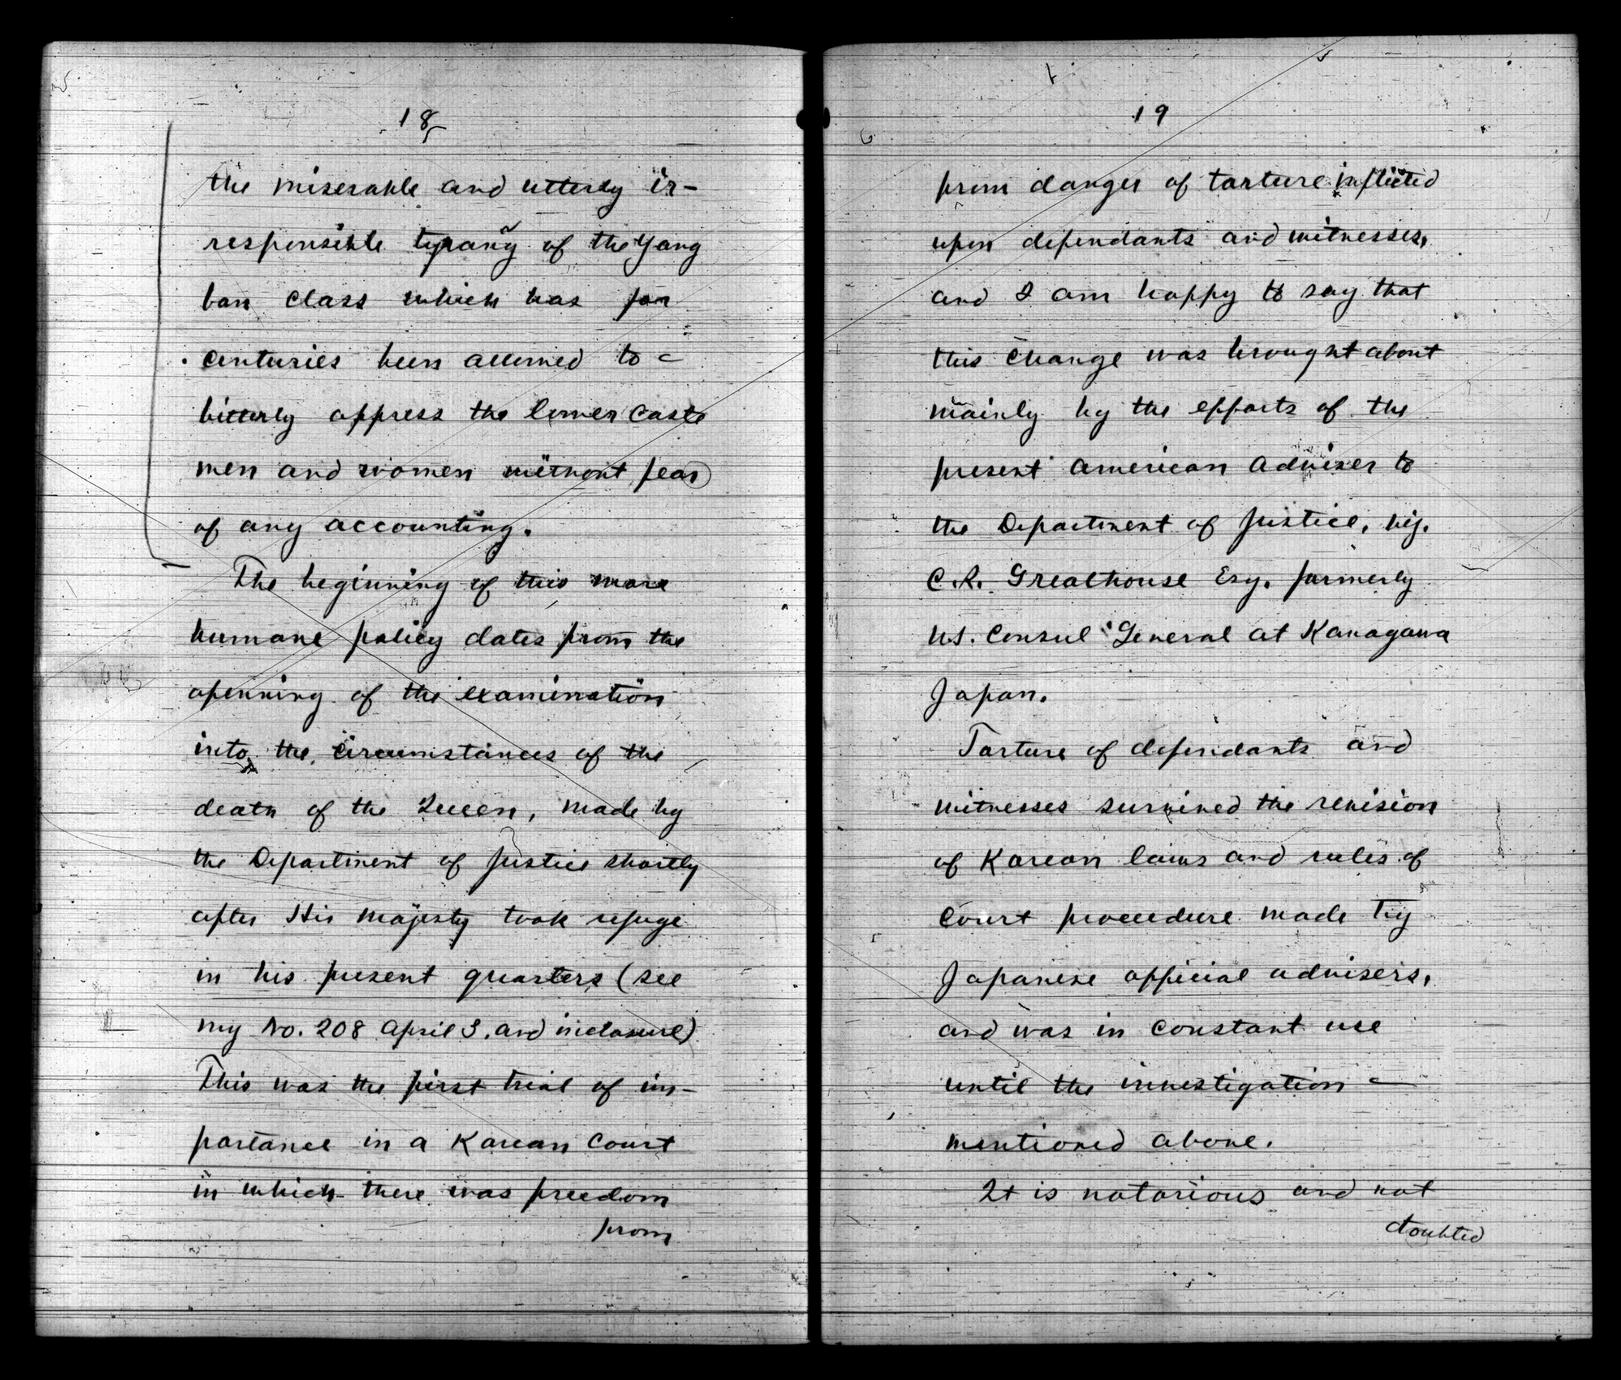 18
the miserable and utterly ir-
responsible tyrany of the Yang
ban class which has for
centuries been allowed to -
bitterly oppress the lower caste
men and women without fear
of any accounting.
The beginning of this more
humane policy dates from the
openning of the examination
into the circumstances of the
death of the Queen, made by
the Department of Justice shortly
after His Majesty took refuge
in his present quarters (see
my No. 208 April 3, and inclosure)
This was the first trial of im-
portance in a Korean Court
in which there was freedom
from
19
from danger of torture inflicted
upon defendants and witnesses,
and I am happy to say that
this change was brought about
mainly by the efforts of the
present American adviser to
the Department of Justice, viz.
C.R. Greathouse Esq. formerly
U.S. Consul General at Kanagawa
Japan.
Torture of defendants and
witnesses survived the revision
of Korean laws and rules of
Court procedure made by
Japanese official advisers,
and was in constant use
until the investigation -
mentioned above.
It is notorious and not
doubted